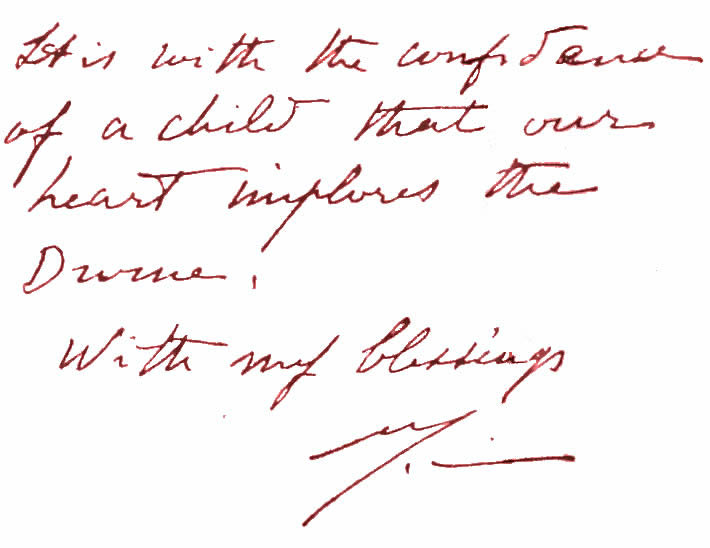 It is with the confidence
of a child that our
heart implores the
Divine.
With my blessings